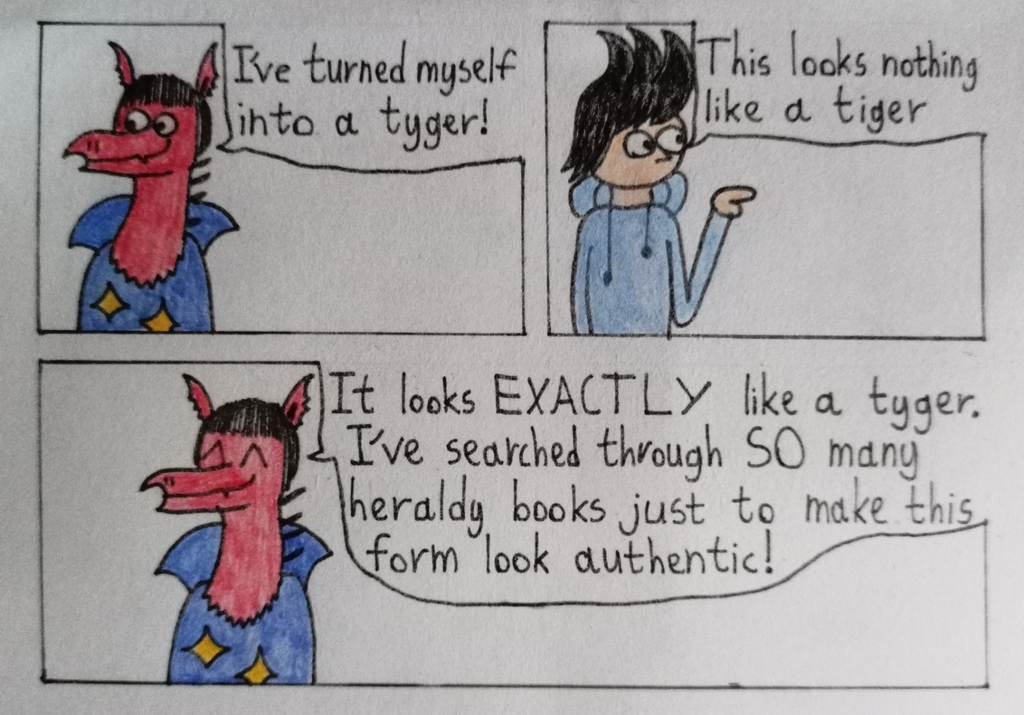 I've turned myself
into a tyger!
This looks nothing
like a tiger
It looks EXACTLY like a tyger.
I've searched through SO many
heraldy books just to make this
form look authentic!